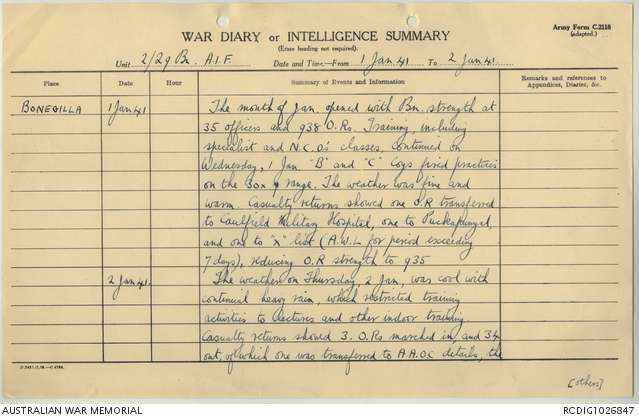 Army Form C.2118
(adapted.)
WAR DIARY or INTELLIGENCE SUMMARY
(Erase heading not required).
Unit 2/29 Bn. A.I.F. Date and Time—From 1 Jan 41 To 2 Jan 41.
Place Date Hour Summary of Events and Information Remarks and references to Appendices, Diaries, &c.
BONEGILLA 1 Jan 41 The month of Jan. opened with Bn. strength at
35 officers and 938 O.Rs. Training, including
specialist and N.C.O's classes, continued on
Wednesday, 1 Jan. "B" and "C" Coys fired practices
on the Box range. The weather was fine and
warm. Casualty returns showed one O.R transferred
to Caulfield Military Hospital, one to Puckapunyal,
and one to "X" list (A.W.L for period exceeding
7 days), reducing O.R strength to 935
2 Jan 41. The weather on Thursday, 2 Jan, was cool with
continual heavy rain, which restricted training
activities to lectures and other indoor training
Casualty returns showed 3 O.Rs marched in and 34
out, of which one was transferred to A.A.O.C details, the
[others]
AUSTRALIAN WAR MEMORIAL RCDIG1026847